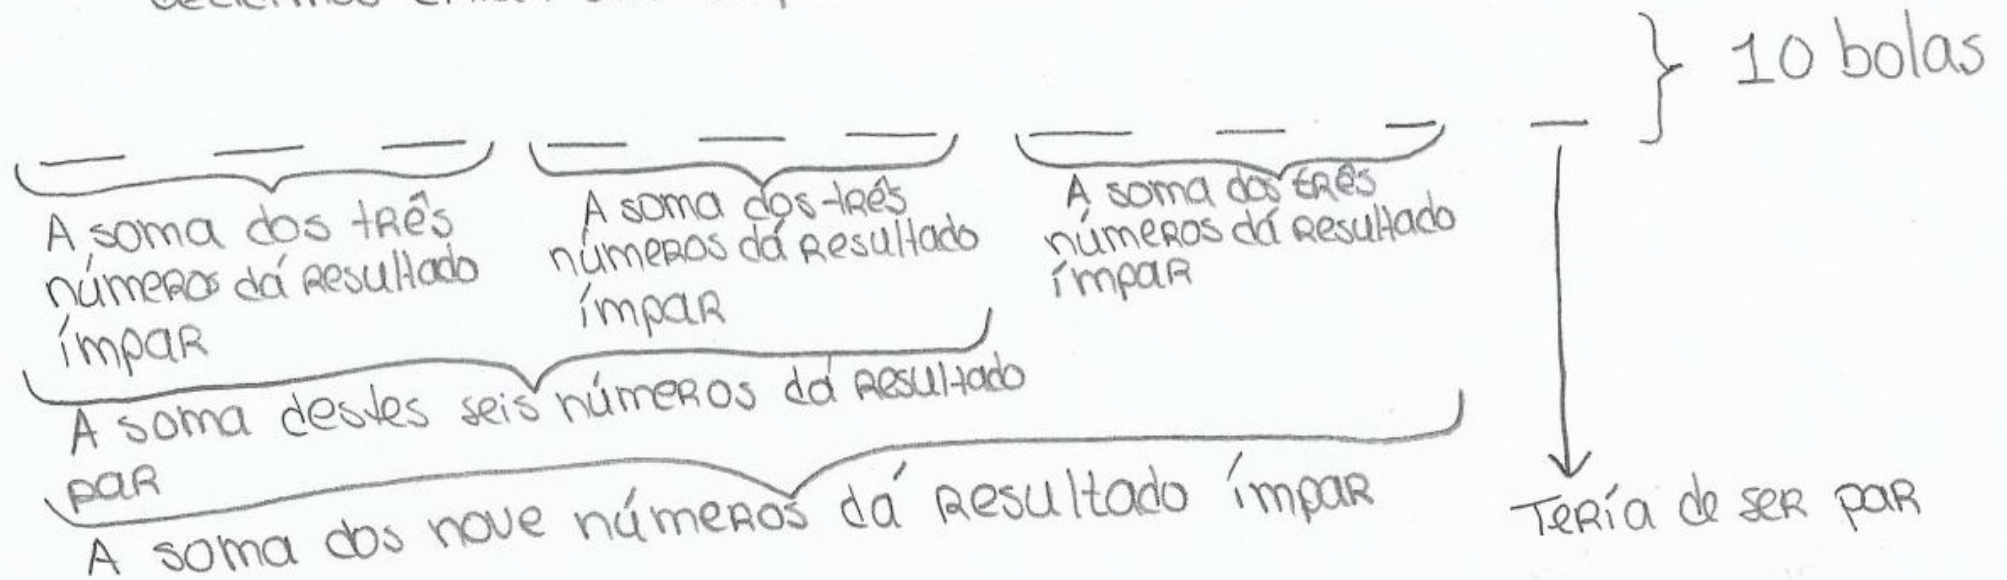 10 bolas
A soma dos três
números dá resultado
ímpar
A soma dos três
números dá resultado
ímpar
A soma dos três
números dá resultado
ímpar
A soma destes seis números dá resultado
par
A soma dos nove números dá resultado ímpar
Tería de ser par